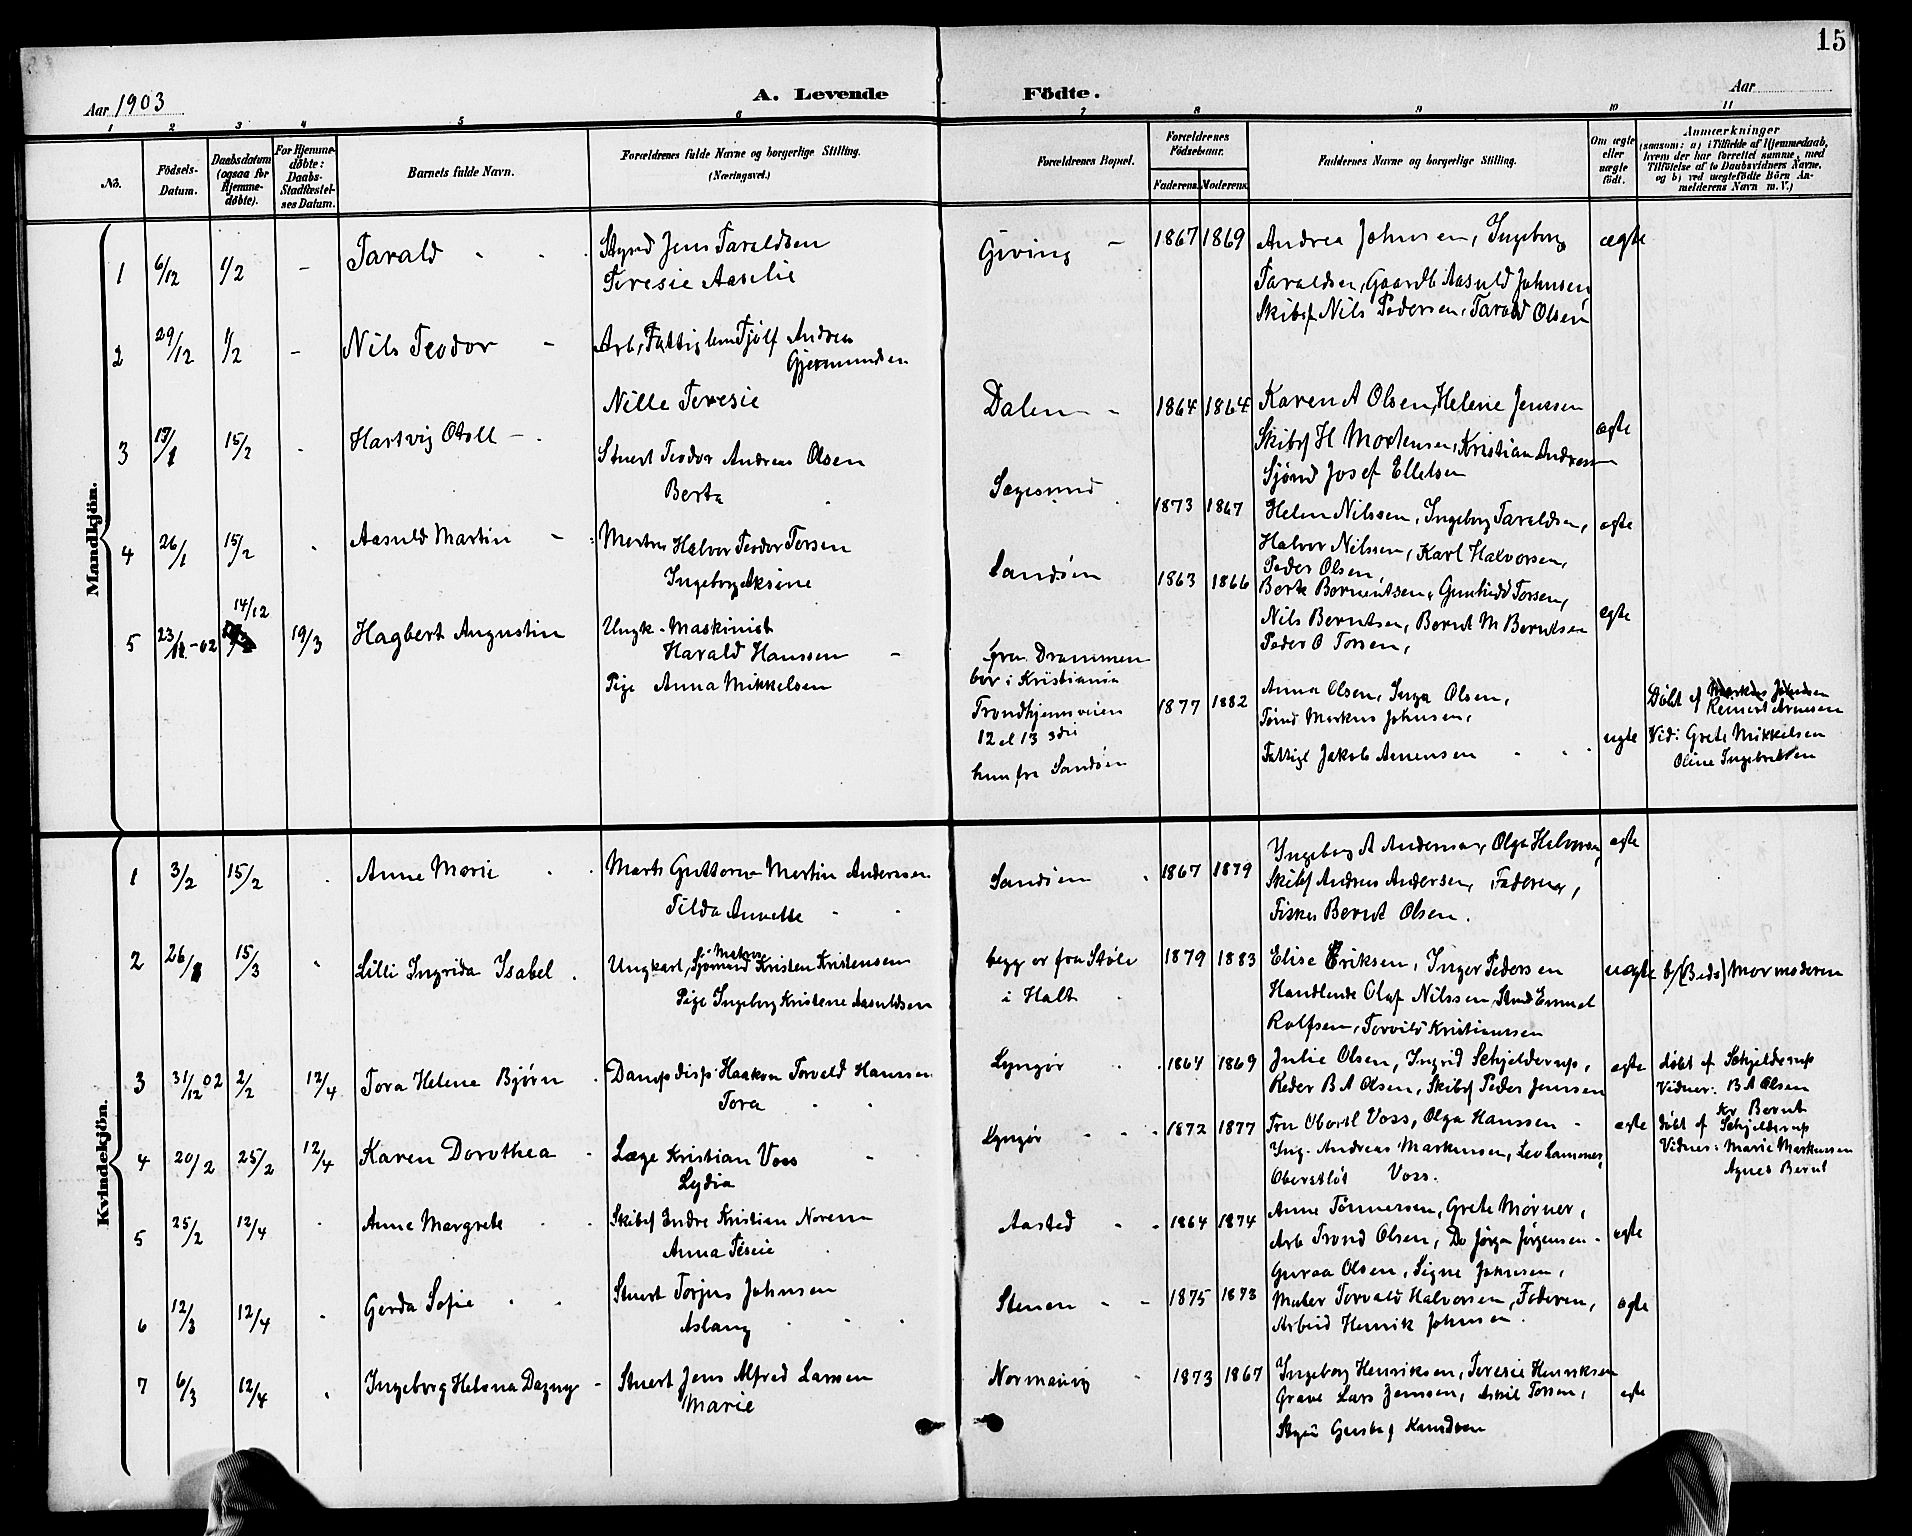 15
Aar 1903
A. Levende Födte.
Aar
1 2 3 4 5 6 7 8 9 10 11
No.
Födsels-Datum.
Daabsdatum (ogsaa for Hjemmedöbte).
For Hjemmedöbte: Daabs-Stadfæstelses Datum.
Barnets fulde Navn.
Forældrenes fulde Navne og borgerlige Stilling. (Næringsvei.)
Forældrenes Bopæl.
Forældrenes Födselsaar.
Faderens. Moderens.
Faddernes Navne og borgerlige Stilling.
Om ægte eller uægte födt.
Anmærkninger
(saasom: a) i Tilfælde af Hjemmedaab, hvem der har forrettet samme, med Tilföielse af to Daabsvidners Navne, og b) ved uægtefödte Börn Anmelderens Navn m. V.)
Mandkjön.
1 6/12 1/2 - Tarald
Jens Taraldsen
Teresie Aaselie
Giving - 1867 1869
Andrea Johnsen, Ingeborg
Taraldsen, Gaardb Aasuld Johnsen,
Skibsf Nils Pedersen, Tarald Olsen
ægte
2 29/12 1/2 - Nils Teodor -
Arb, Fattiglem Fjølf Andreas
Gjermundsen
Nille Teresie
Dalen - 1864 1864
Karen A Olsen, Helene Jenssen
Skibsf H Mortensen, Kristian Andresen
Sjömd Josef Ellefsen
ægte
3 15/2 Hartvig Otell -
Stuert Teodor Andreas Olsen
Berta
Sagesund 1873 1867
Helen Nilssen, Ingeborg Taraldsen,
Halvor Nilssen, Karl Halvorsen,
Peder Olsen,
ægte
4 26/1 15/2 Aasuld Martin -
Matros Halvor Teodor Torsen
Ingeborg Aksine
Sandøen 1863 1866
Berte Berntsen, Gunhild Torsen,
Nils Berntsen, Bernt M Berntsen
Peder O Torsen,
ægte
5 23/11-02 14/12 19/3 Hagbert Augustin
Ungk. Maskinist
Harald Hanssen -
Pige Anna Mikkelsen
fra Drammen
bor i Kristiania
Trondhjemsveien
12 el 13 3die
hun fra Sandøen
1877 1882
Anna Olsen, Inga Olsen,
Tømd Markus Johnsen,
Fattigl Jakob Arnensen
uægte
Döbt af Reinert Arnesen
Vid: Grete Mikkelsen
Oline Ingebretsen
Kvindekjön.
1 3/2 15/2 Anne Marie
Matr Guttorm Martin Andersen
Tilda Annette
Sandøen 1867 1879
Ingeborg A Andersen, Olga Halvorsen,
Skibsf Andreas Andersen, Faderen,
Fisker Bernt Olsen.
ægte
2 26/1 15/3 Lilli Ingrida Isabel
Ungkarl, Sjømand Matros Kristen Kristensen
Pige Ingeborg Kristene Aasuldsen
begg er fra Støle
i Holt
1879 1883
Elise Eriksen, Inger Pedersen
Handlende Olaf Nilssen, Stmd Emmel
Rolfsen, Torvild Kristianssen
uægte
b/(Beds) Mormoderen
3 31/12 02 2/2 12/4 Tora Helene Bjørn
Dampdisp. Haakon Torvald Hanssen
Tora
Lyngør 1864 1869
Julie Olsen, Ingrid Schjelderup,
Reder B A Olsen, Skibsf Peder Jenssen
ægte
döbt af Schjelderup
Vidner: B A Olsen
Kr Bernt
4 20/2 25/2 12/4 Karen Dorothea -
Læge Kristian Voss
Lydia
Lyngør 1872 1877
Fru Oberstl Voss, Olga Hanssen
Ing. Andreas Markussen, Leo Lammers,
Oberstløt Voss.
ægte
döbt af Schjelderup
Vidner: Marie Markussen
Agnes Bernt
5 25/2 12/4 Anne Margrete
Skibsf Endre Kristian Norem
Anna
Aasted 1864 1874
Anne Tønnersen, Grete Mørner,
Arb Trond Olsen, Do Jørgen Jørgensen
ægte
6 12/3 12/4 Gerda Sofie
Stuert Torjus Johnsen
Aslaug
Stenen 1875 1873
Guroa Olsen, Signe Johnsen,
Maler Torvald Halvorsen, Faderen,
Arbeid Henrik Johnsen.
ægte
7 6/3 12/4 Ingeborg Helena Dagny -
Stuert Jens Alfred Larsen
Marie
Normanvig 1873 1867
Ingeborg Henriksen, Teresie Henriksen
Grave Lars Jenssen, Torsen,
Knudsen
ægte